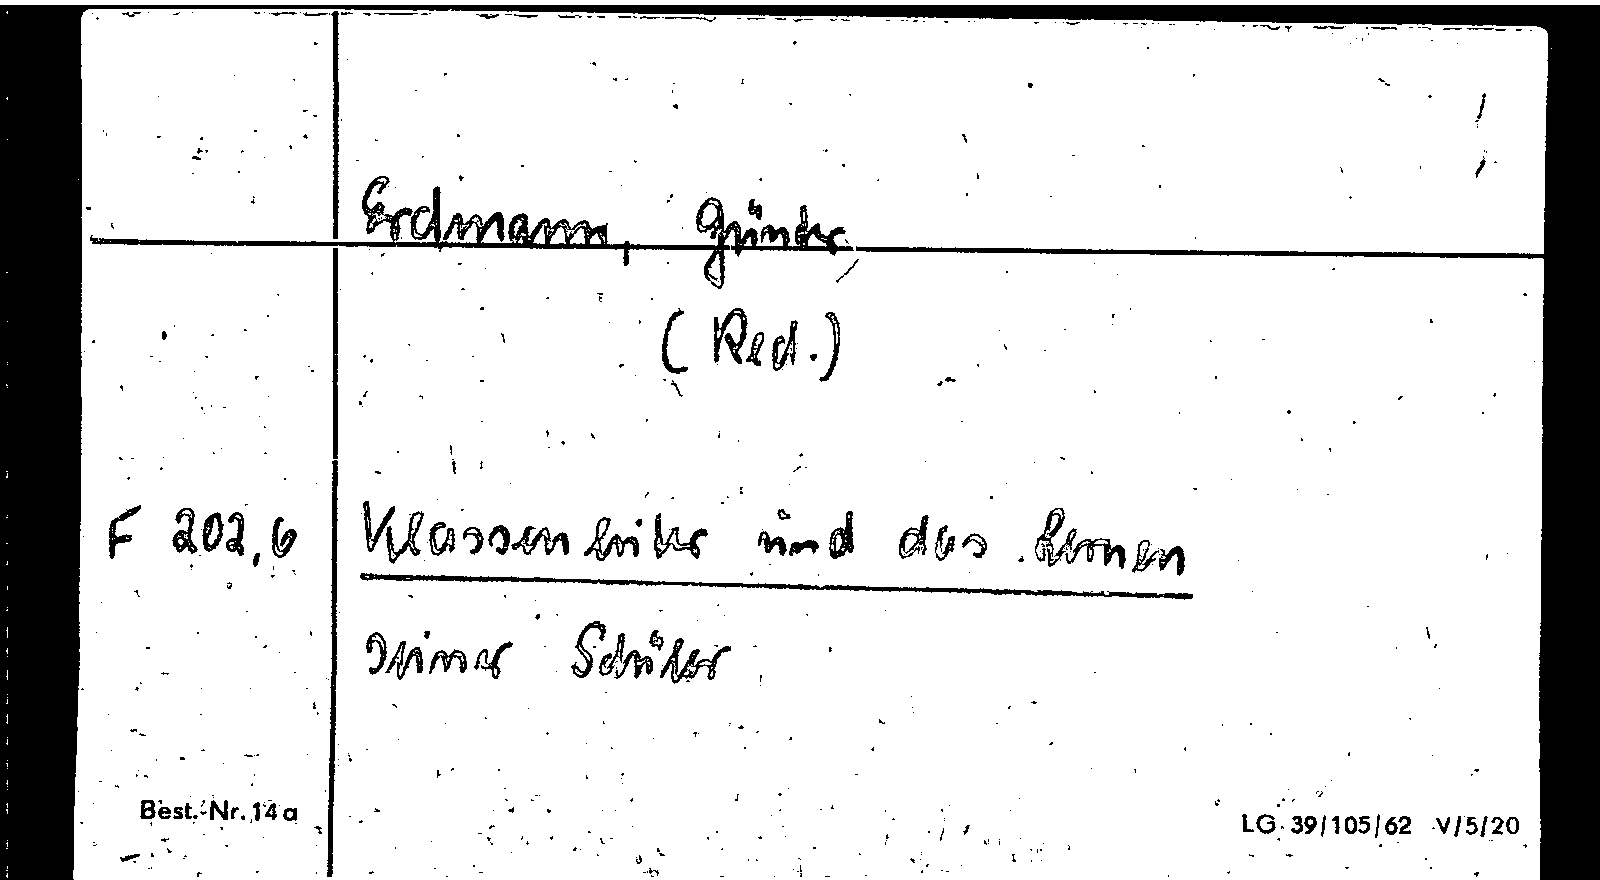 Erdmann, Günter
(Red.)
F 202,6 Klassenleiter und das Lernen
seiner Schüler
Best.-Nr. 14a
LG 39/105/62 V/5/20